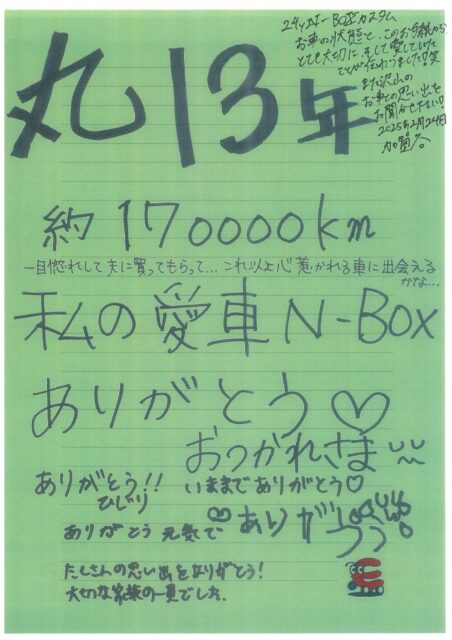 24y N-BOXカスタム
お車の状態と、このお手紙から
とても大切に、そして愛していた
ことが伝わりました！笑
また沢山の
お車との思い出を
お聞かせ下さい！
2025年2月24日
加賀谷
丸13年
約170000km
一目惚れして夫に買ってもらって…これ以上心惹かれる車に出会える
かな…
私の愛車N-BOX
ありがとう♡
おつかれさま
ありがとう!! いままでありがとう♡
ひじり
ありがとう 元気で ♡ありがとう
たくさんの思い出をありがとう！
大切な家族の一員でした。